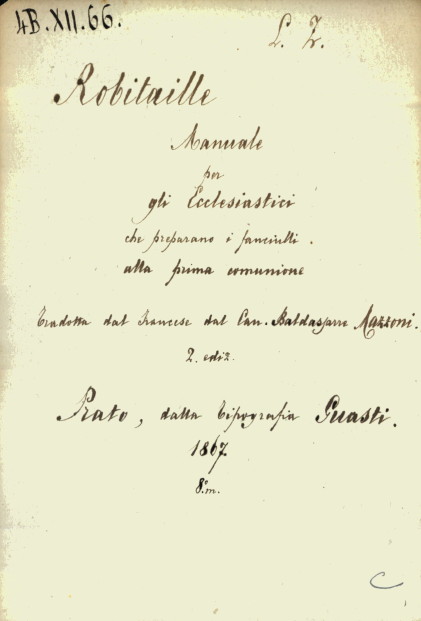 4B.XII.66.
L. Z.
Robitaille
Manuale
per
gli Ecclesiastici
che preparano i fanciulli.
alla prima comunione
Tradotta dal Francese dal Can. Baldassare Mazzoni.
2. ediz.
Prato, dalla Tipografia Guasti.
1867.
8.° m.
C